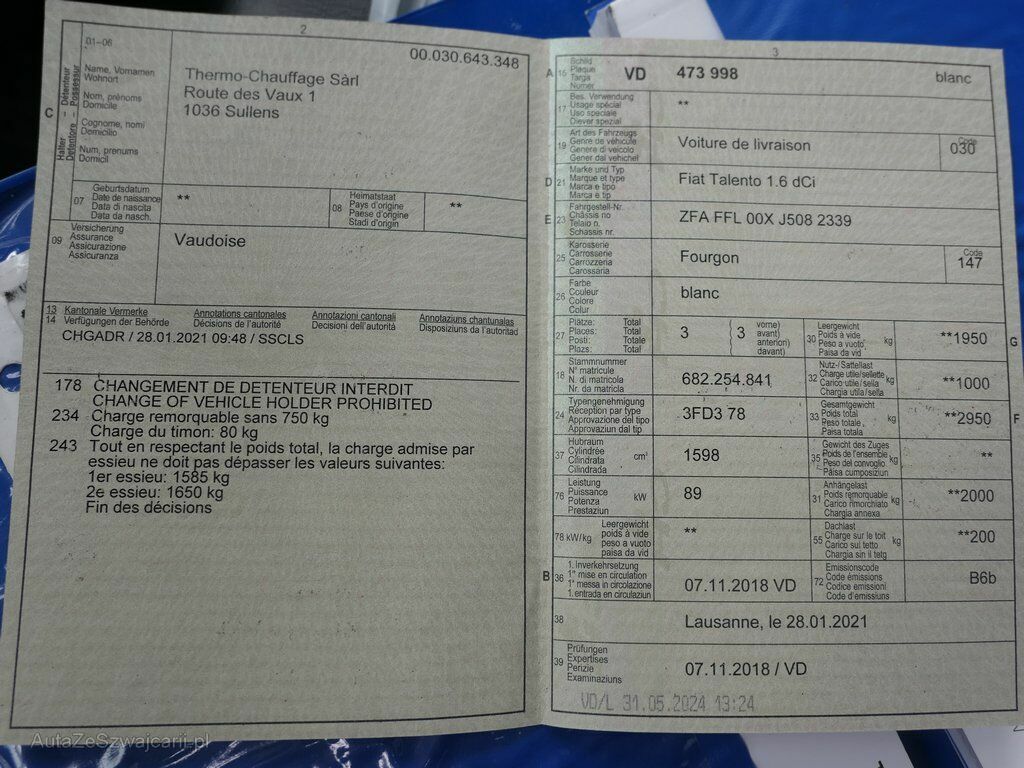 2
00.030.643.348
C
Halter
Détenteur
Detentore
Possessur
01-06
Name, Vornamen
Wohnort
Nom, prénoms
Domicile
Cognome, nomi
Domicilio
Num, prenums
Domicil
Thermo-Chauffage Sàrl
Route des Vaux 1
1036 Sullens
07
Geburtsdatum
Date de naissance
Data di nascita
Data da nasch.
**
08
Heimatstaat
Pays d'origine
Paese d'origine
Stadi d'origin
**
09
Versicherung
Assurance
Assicurazione
Assicuranza
Vaudoise
13 Kantonale Vermerke Annotations cantonales Annotazioni cantonali Annotaziuns chantunalas
14 Verfügungen der Behörde Décisions de l'autorité Decisioni dell'autorità Disposiziuns da l'autoritad
CHGADR / 28.01.2021 09:48 / SSCLS
178 CHANGEMENT DE DETENTEUR INTERDIT
CHANGE OF VEHICLE HOLDER PROHIBITED
234 Charge remorquable sans 750 kg
Charge du timon: 80 kg
243 Tout en respectant le poids total, la charge admise par
essieu ne doit pas dépasser les valeurs suivantes:
1er essieu: 1585 kg
2e essieu: 1650 kg
Fin des décisions
3
A 15
Schild
Plaque
Targa
Numer
VD 473 998 blanc
17
Bes. Verwendung
Usage spécial
Uso speciale
Diever spezial
**
19
Art des Fahrzeugs
Genre de véhicule
Genere di veicolo
Gener dal vehichel
Voiture de livraison
Code
030
D 21
Marke und Typ
Marque et type
Marca e tipo
Marca e tip
Fiat Talento 1.6 dCi
E 23
Fahrgestell-Nr.
Châssis no
Telaio n.
Schassis nr.
ZFA FFL 00X J508 2339
25
Karosserie
Carrosserie
Carrozzeria
Carossaria
Fourgon
Code
147
26
Farbe
Couleur
Colore
Colur
blanc
27
Plätze: Total
Places: Total
Posti: Totale
Plazs: Total
3
3
vorne)
avant)
anteriori)
davant)
30
Leergewicht
Poids à vide
Peso a vuoto
Paisa da vid
kg
**1950
G
18
Stammnummer
N° matricule
N. di matricola
Nr. da matricla
682.254.841
32
Nutz-/Sattellast
Charge utile/sellette
Carico utile/sella
Chargia utila/sella
kg
**1000
24
Typengenehmigung
Réception par type
Approvazione del tipo
Approvaziun dal tip
3FD3 78
33
Gesamtgewicht
Poids total
Peso totale
Paisa totala
kg
**2950
F
37
Hubraum
Cylindrée
Cilindrata
Cilindrada
cm³
1598
35
Gewicht des Zuges
Poids de l'ensemble
Peso del convoglio
Paisa cumposiziun
kg
**
76
Leistung
Puissance
Potenza
Prestaziun
kW
89
31
Anhängelast
Poids remorquable
Carico rimorchiato
Chargia annexa
kg
**2000
78 kW/kg
Leergewicht
poids à vide
peso a vuoto
paisa da vid
**
55
Dachlast
Charge sur le toit
Carico sul tetto
Chargia sin il tetg
kg
**200
B 36
1. Inverkehrsetzung
1re mise en circulation
1a messa in circolazione
1. entrada en circulaziun
07.11.2018 VD
72
Emissionscode
Code émissions
Codice emissioni
Code d'emissiuns
B6b
38
Lausanne, le 28.01.2021
39
Prüfungen
Expertises
Perizie
Examinaziuns
07.11.2018 / VD
VD/L 31.05.2024 13:24
AutaZeSzwajcarii.pl